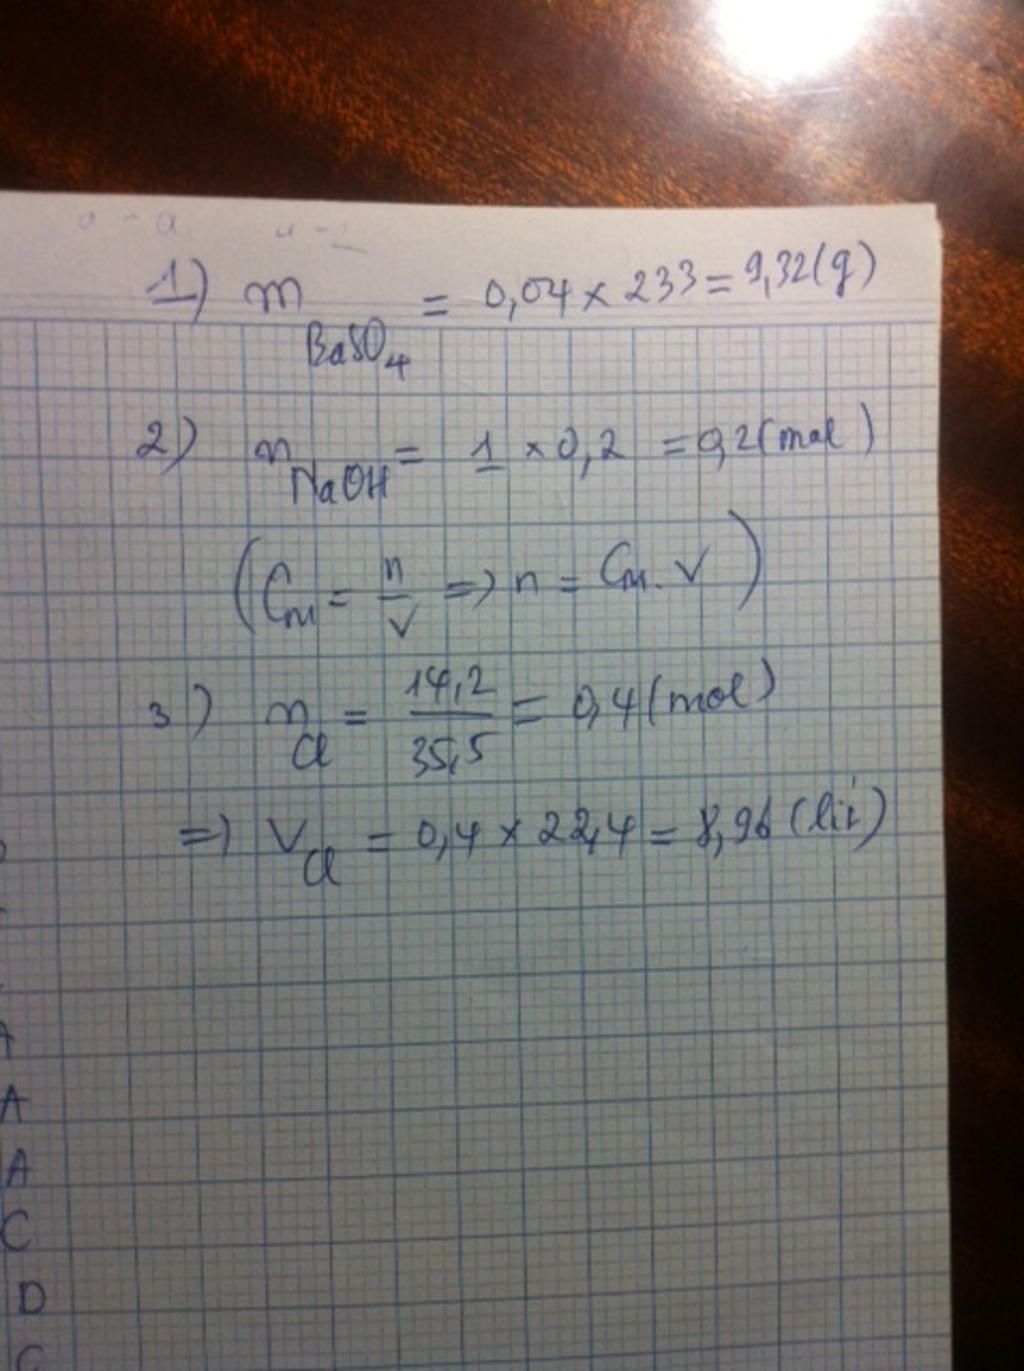 1) m BaSO4 = 0,04 × 233 = 9,32 (g)
2) n NaOH = 1 × 0,2 = 0,2 (mol)
(CM = n/V => n = CM. V)
3) n Cl = 14,2/35,5 = 0,4 (mol)
=> V Cl = 0,4 × 22,4 = 8,96 (lít)
A
A
C
D
C